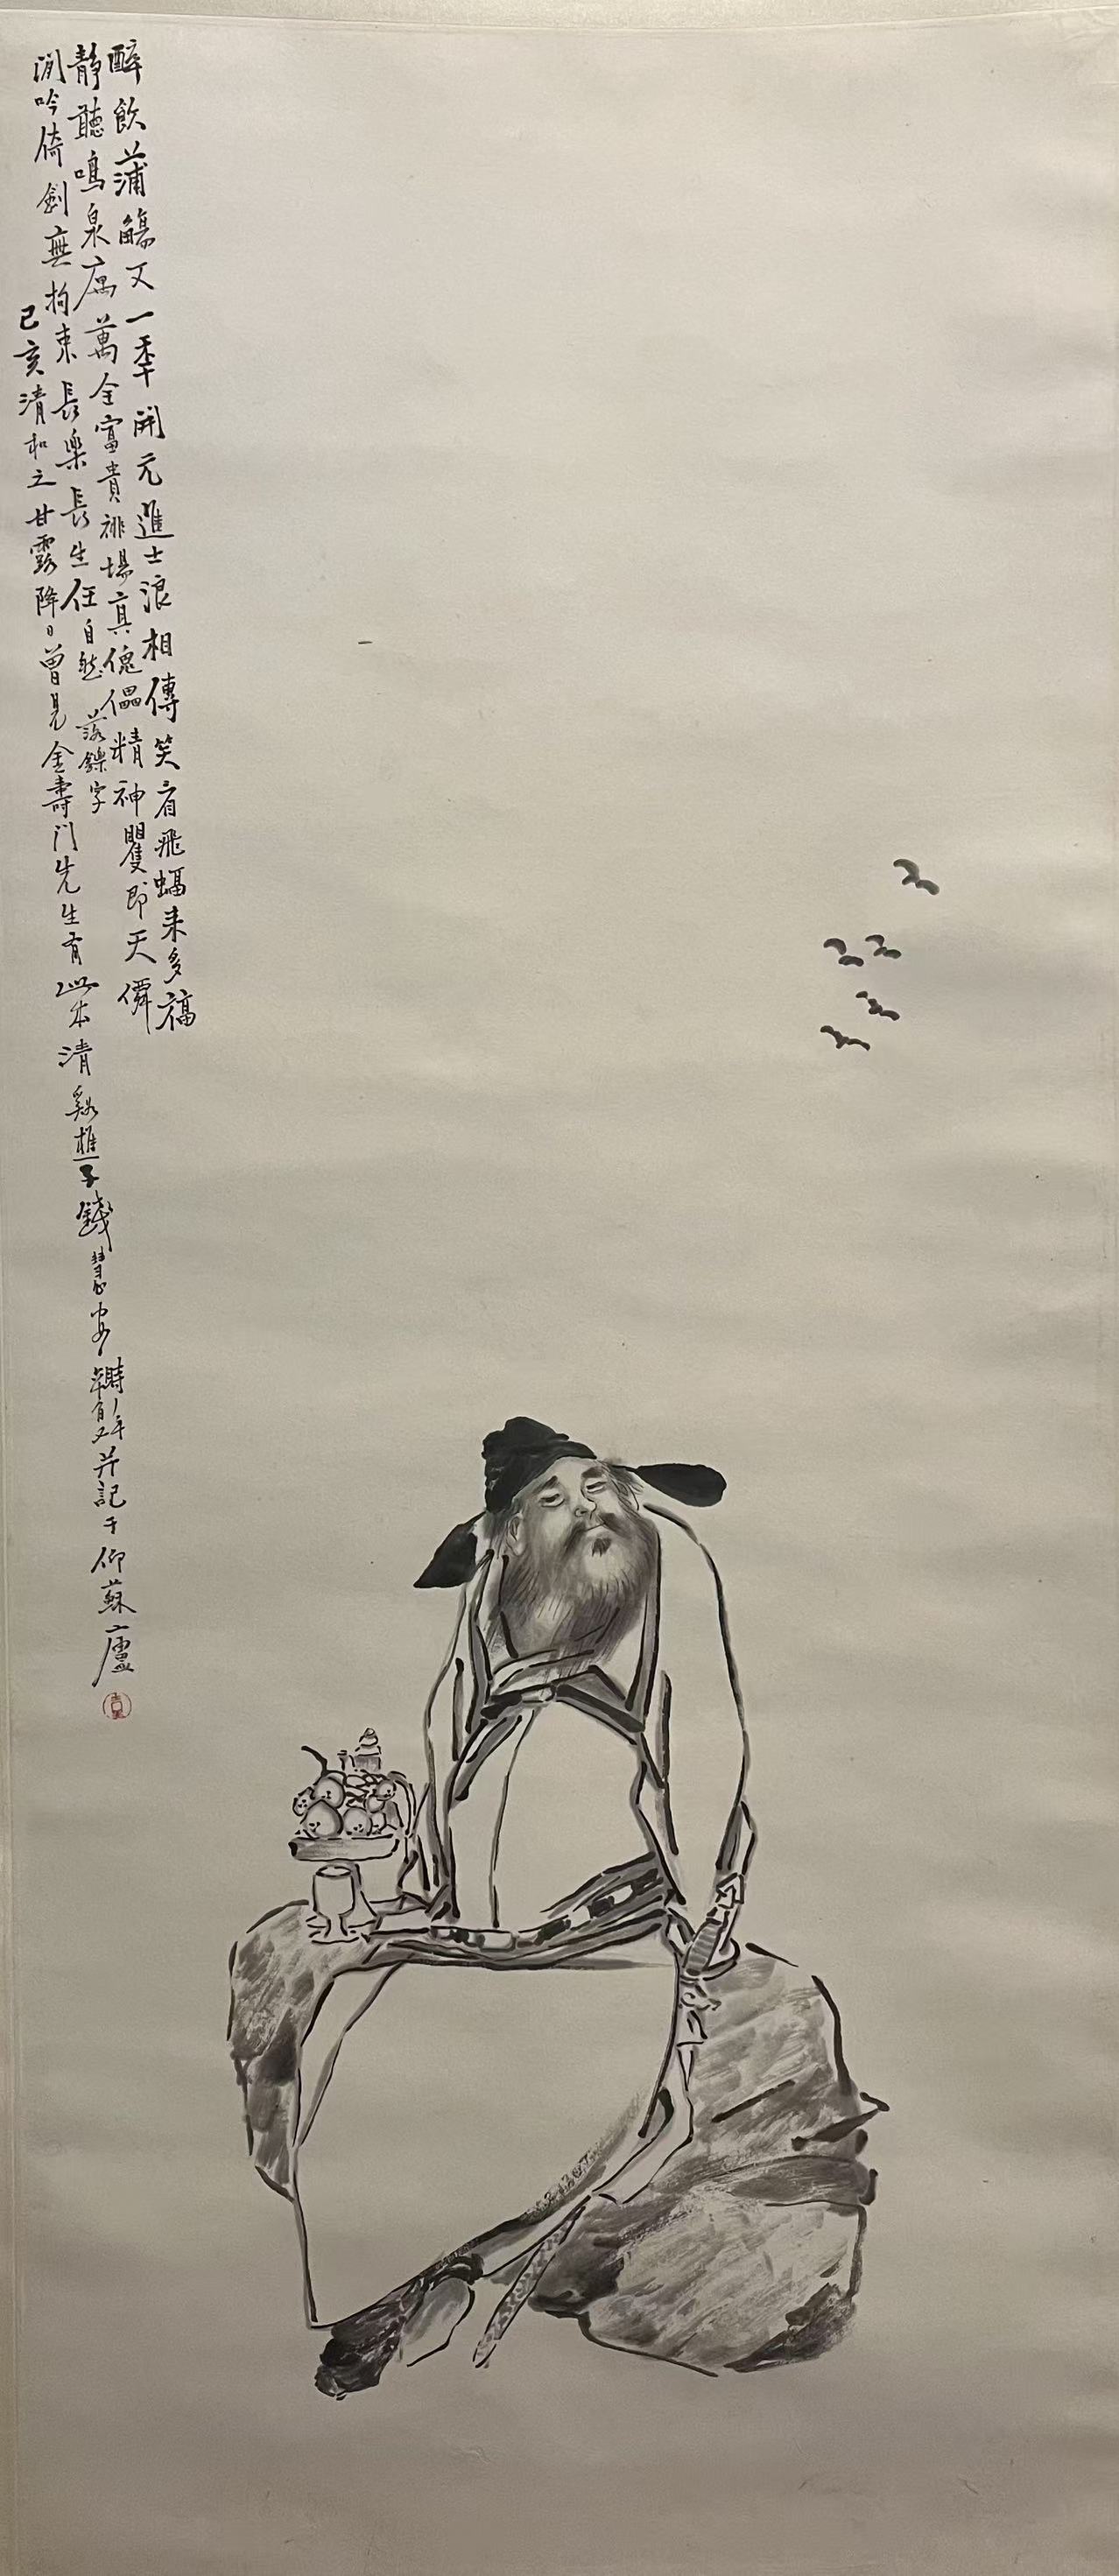 醉飲蒲觴又一秊開元進士浪相傳笑看飛蝠来多福
靜聽鳴泉庽萬全富貴排場真傀儡精神矍即天僊
閒吟倚劍無拘束長樂長生任自然 落鑠字
己亥清和之甘露降日曾見金壽門先生有此本清谿樵子錢慧安時年并記于仰蘇廬